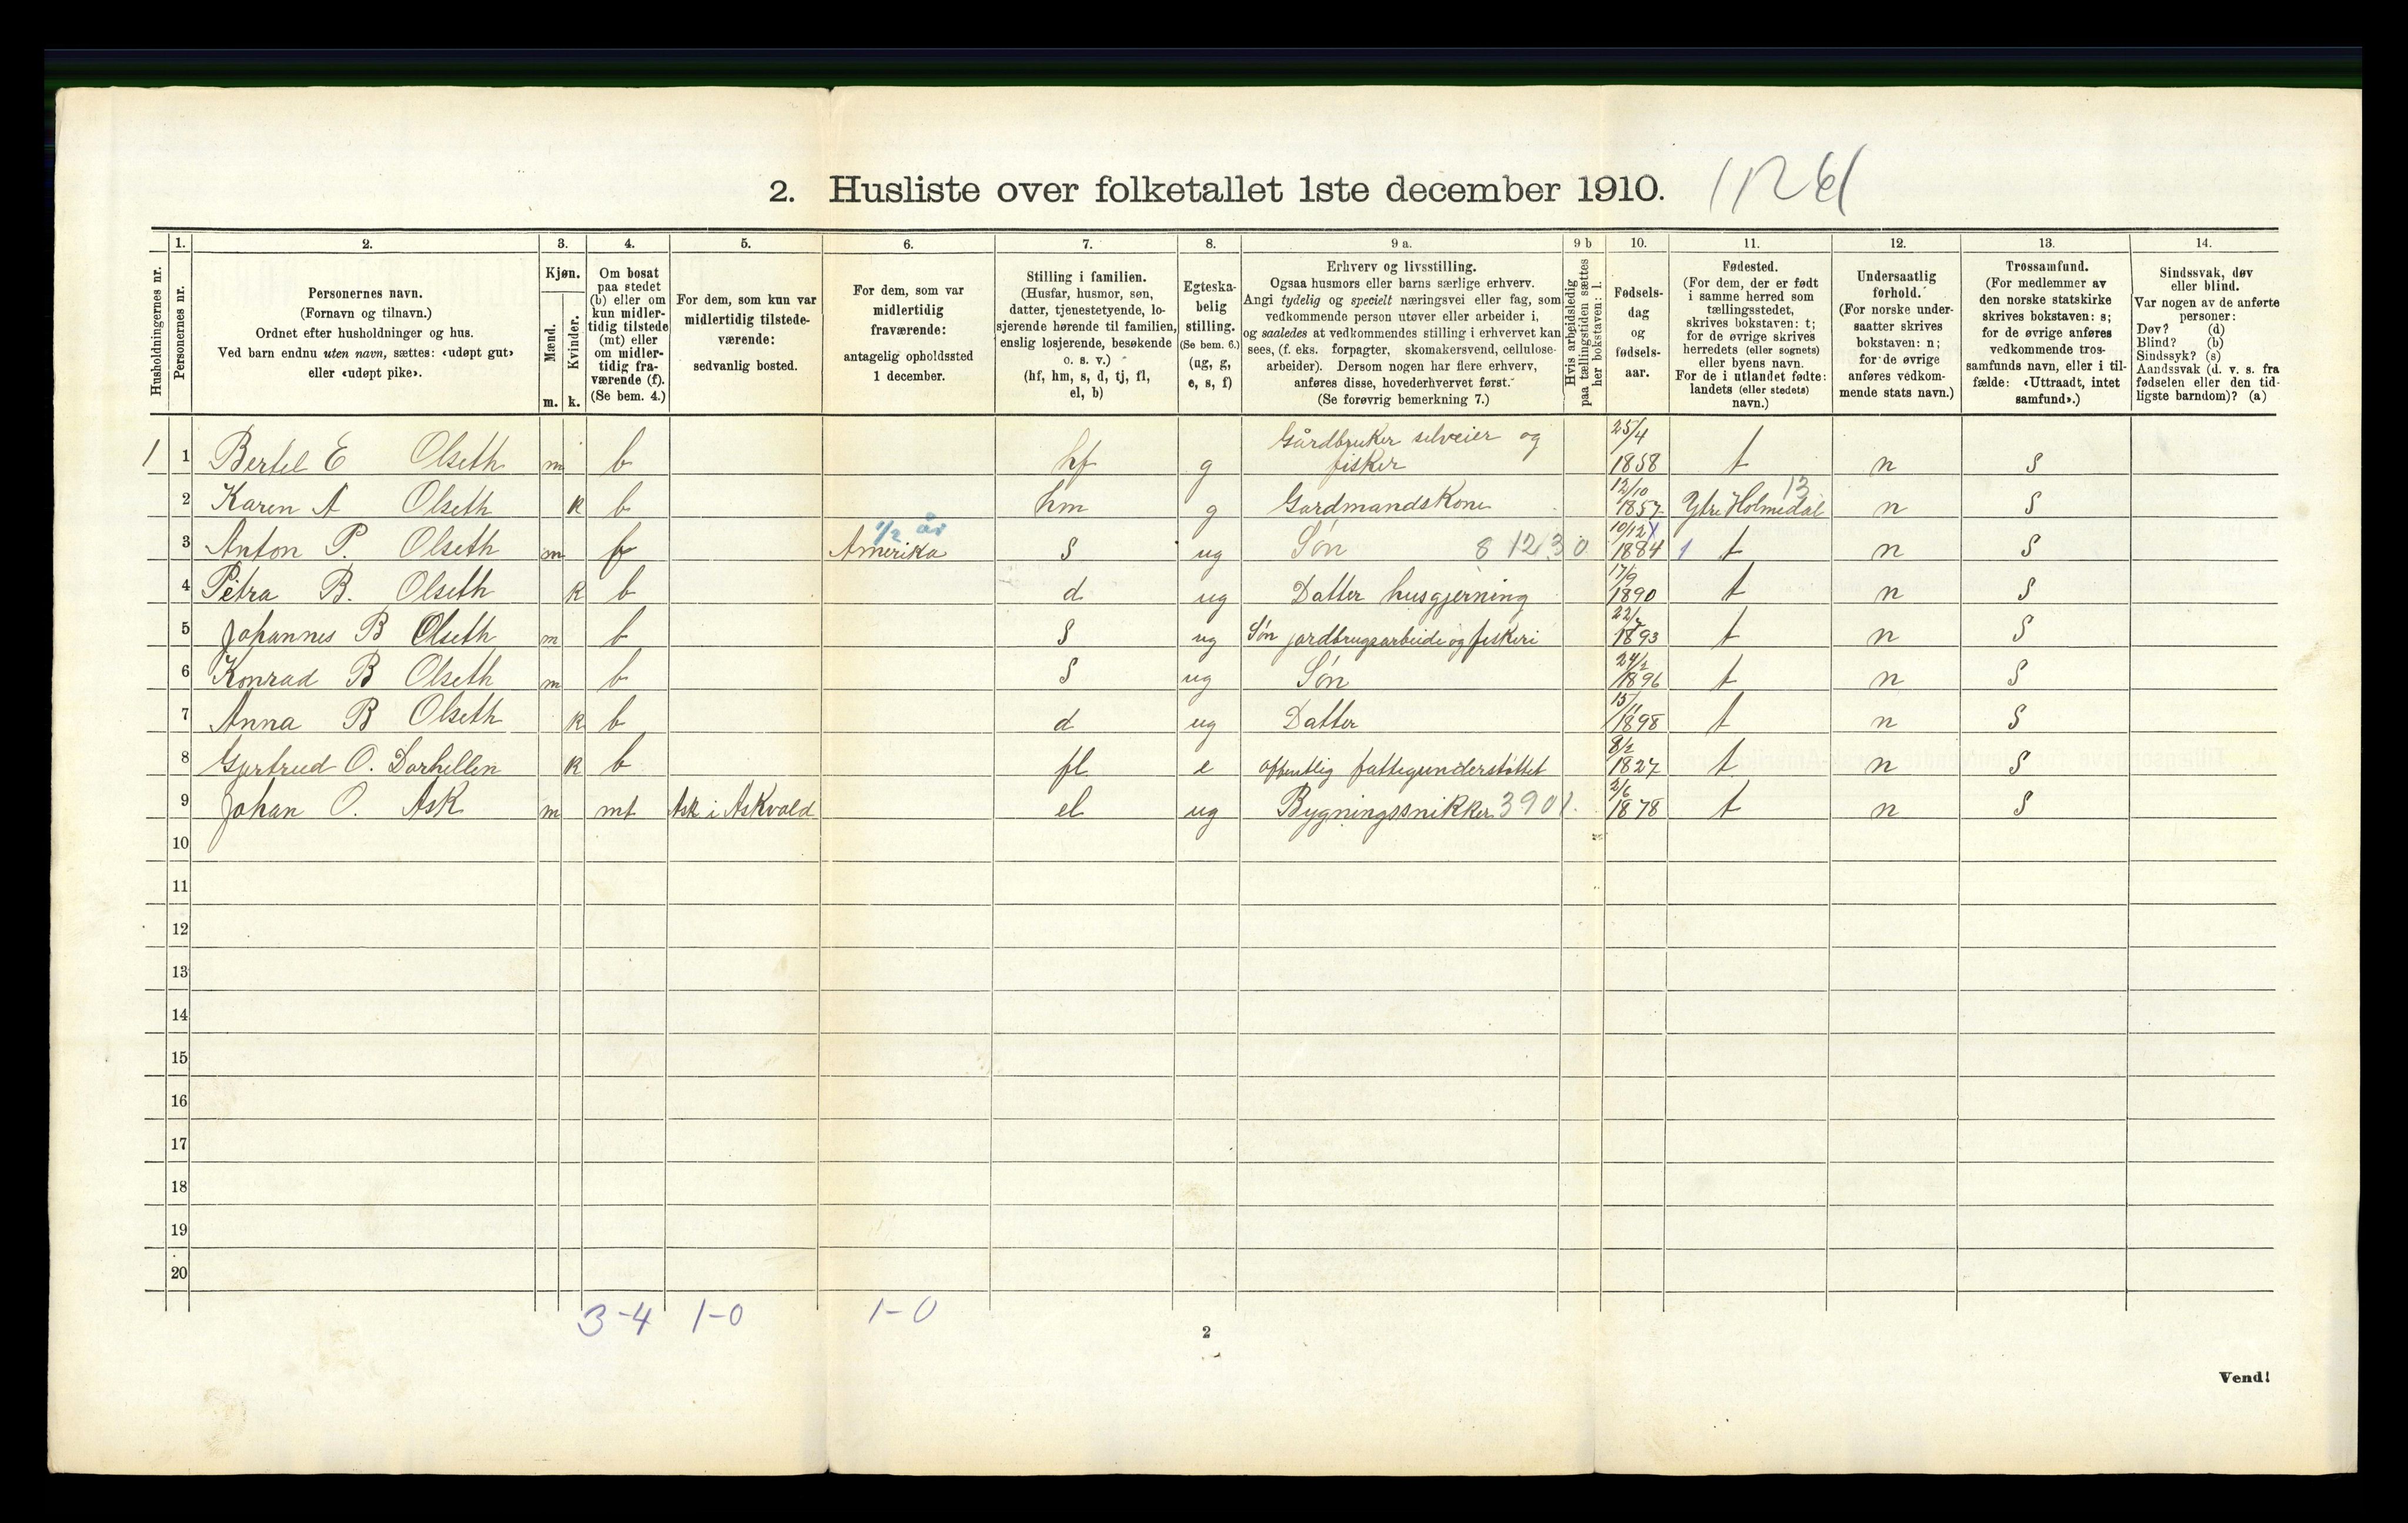 2. Husliste over folketallet 1ste december 1910.
Husholdningernes nr.
1. Personernes nr.
2. Personernes navn.
(Fornavn og tilnavn.)
Ordnet efter husholdninger og hus.
Ved barn endnu uten navn, sættes: «udøpt gut»
eller «udøpt pike».
3. Kjøn.
Mænd. m.
Kvinder. k.
4. Om bosat
paa stedet
(b) eller om
kun midler-
tidig tilstede
(mt) eller
om midler-
tidig fra-
værende (f).
(Se bem. 4.)
5. For dem, som kun var
midlertidig tilstede-
værende:
sedvanlig bosted.
6. For dem, som var
midlertidig
fraværende:
antagelig opholdssted
1 december.
7. Stilling i familien.
(Husfar, husmor, søn,
datter, tjenestetyende, lo-
sjerende hørende til familien,
enslig losjerende, besøkende
o. s. v.)
(hf, hm, s, d, tj, fl,
el, b)
8. Egteska-
belig
stilling.
(Se bem. 6.)
(ug, g,
e, s, f)
9 a. Erhverv og livsstilling.
Ogsaa husmors eller barns særlige erhverv.
Angi tydelig og specielt næringsvei eller fag, som
vedkommende person utøver eller arbeider i,
og saaledes at vedkommendes stilling i erhvervet kan
sees, (f. eks. forpagter, skomakersvend, cellulose-
arbeider). Dersom nogen har flere erhverv,
anføres disse, hovederhvervet først.
(Se forøvrig bemerkning 7.)
9 b Hvis arbeidsledig
paa tællingstiden sættes
her bokstaven: l.
10. Fødsels-
dag
og
fødsels-
aar.
11. Fødested.
(For dem, der er født
i samme herred som
tællingsstedet,
skrives bokstaven: t;
for de øvrige skrives
herredets (eller sognets)
eller byens navn.
For de i utlandet fødte:
landets (eller stedets)
navn.)
12. Undersaatlig
forhold.
(For norske under-
saatter skrives
bokstaven: n;
for de øvrige
anføres vedkom-
mende stats navn.)
13. Trossamfund.
(For medlemmer av
den norske statskirke
skrives bokstaven: s;
for de øvrige anføres
vedkommende tros-
samfunds navn, eller i til-
fælde: «Uttraadt, intet
samfund».)
14. Sindssvak, døv
eller blind.
Var nogen av de anførte
personer:
Døv? (d)
Blind? (b)
Sindssyk? (s)
Aandssvak (d. v. s. fra
fødselen eller den tid-
ligste barndom)? (a)
1 1 Bertel E Olseth m b hf g Gårdbruker selveier og fisker 25/4 1858 t n S
2 Karen A Olseth k b hm g Gardmandskone 12/10 1857 Ytre Holmedal 13 n S
3 Anton P. Olseth m f Amerika 1/2 år S ug Søn 8 12 3 0 10/12 1884 1 t n S
4 Petra B. Olseth k b d ug Datter husgjerning 17/9 1890 t n S
5 Johannes B Olseth m b S ug Søn jordbrugsarbeide og fiskeri 1893 t n S
6 Konrad B Olseth m b S ug Søn 24/2 1896 t n S
7 Anna B Olseth k b d ug Datter 15/11 1898 t n S
8 Gjertrud O. Dorhellen k b fl e offentlig fattigunderstøttet 8/2 1827 t n S
9 Johan O. Ask m mt Ask i Askvold el ug Bygningssnikker 3901. 2/6 1878 t n S
10
11
12
13
14
15
16
17
18
19
20
3-4 1-0 1-0
2
Vend!